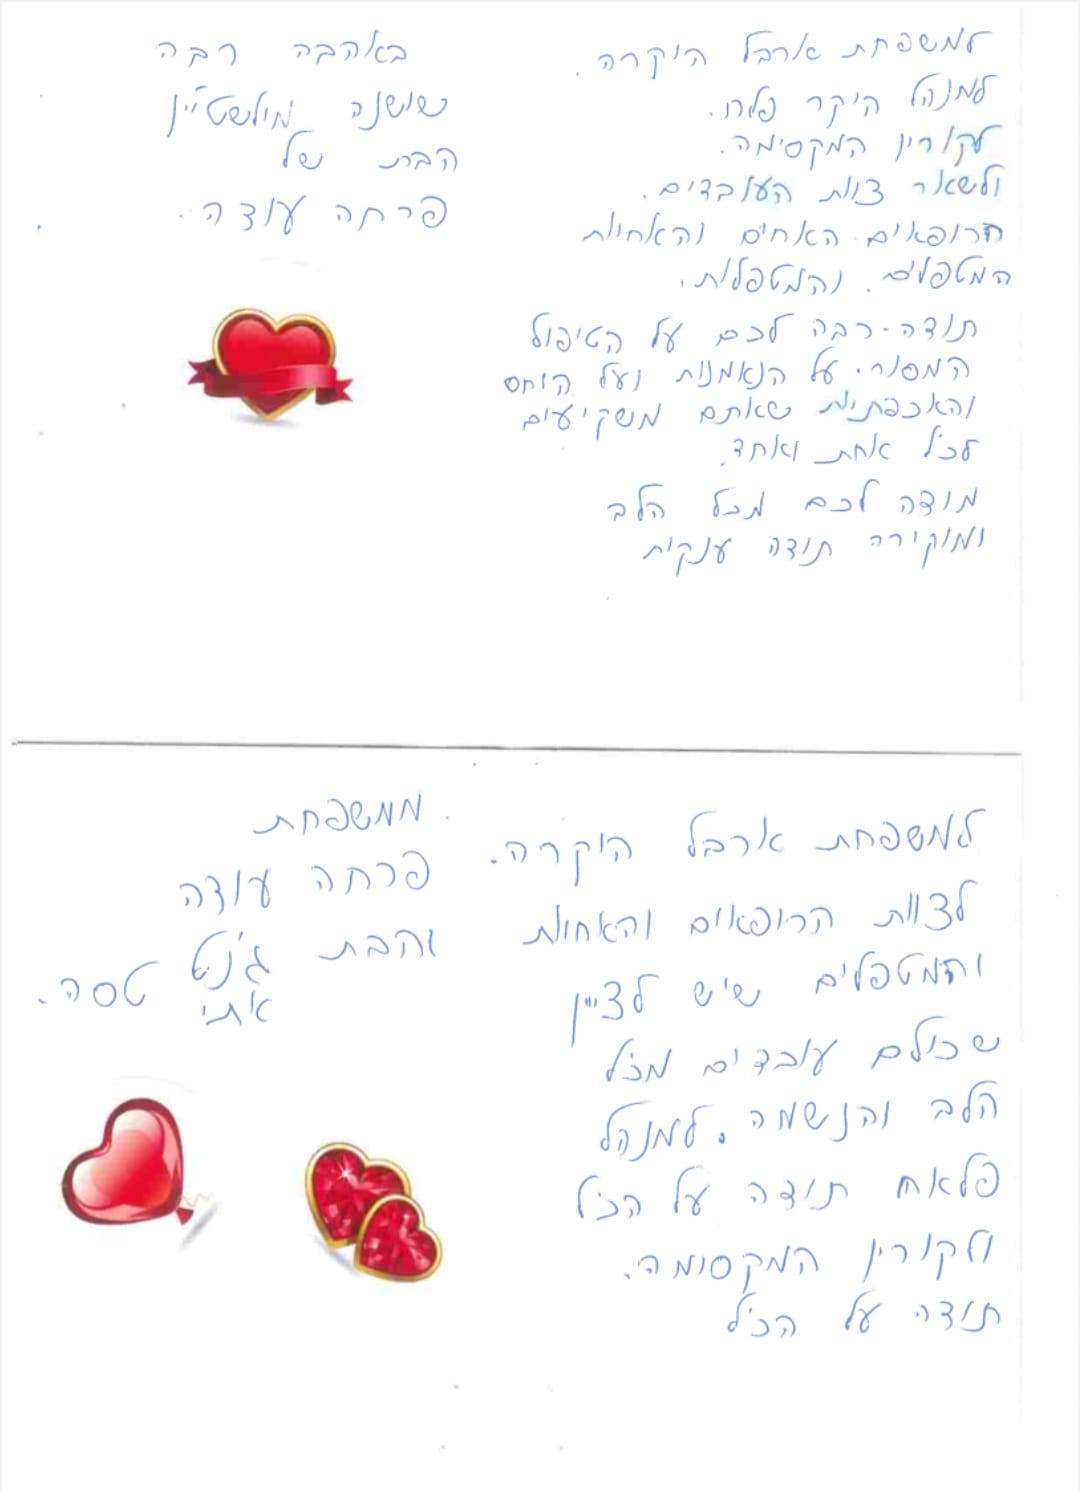 למשפחת ארבל היקרה.
למנהל היקר פלח.
לקורין המקסימה.
ולשאר צוות העובדים.
הרופאים. האחים והאחיות
המטפלים. והמטפלות.
תודה-רבה לכם על הטיפול
המסור. על הנאמנות ועל היחס
והאכפתיות שאתם משקיעים
לכל אחת ואחד.
מודה לכם מכל הלב
ומוקירה תודה ענקית
באהבה רבה
שושנה מילשטיין
הבת של
פרחה עודה.
למשפחת ארבל היקרה.
לצוות הרופאים והאחיות
והמטפלים שיש לציין
שכולם עובדים מכל
הלב והנשמה. למנהל
פלאח תודה על הכל
ולקורין המקסימה.
תודה על הכל
ממשפחת
פרחה עודה
והבת ג'נט טסה.
אתי